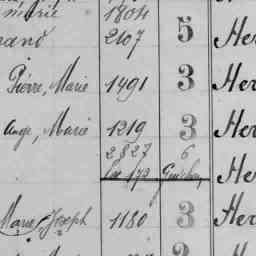 marie 1804
and 2107 5 Her
Pierre, Marie 1491 3 Her
Ange, Marie 1219 3 Her
2827 6 Her
Marie Joseph 1180 3 Her
3